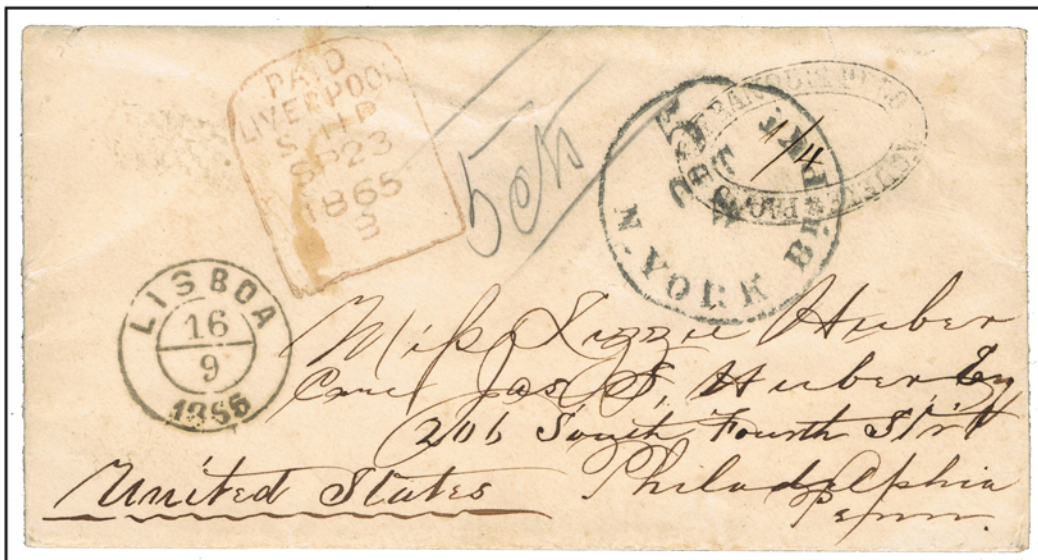 PAID
LIVERPOOL
SHIP
SP 23
1865
5 cts
1/4
N. YORK BR. PKT
LISBOA
16
9
1865
Miss Lizzie Huber
Care Jas S. Huber Esq
206 South Fourth Strt
Philadelphia
Penn.
United States